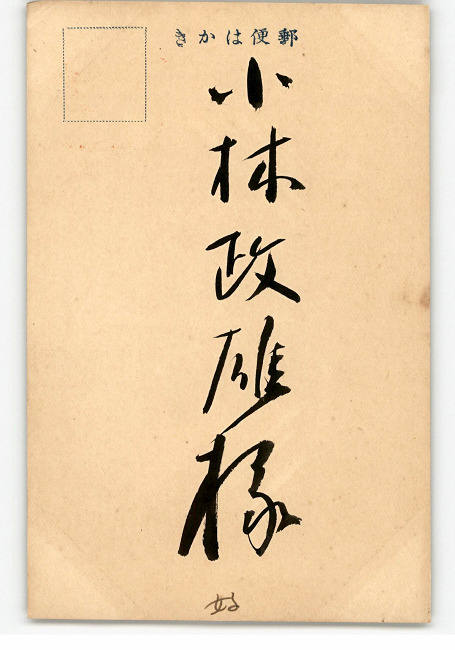 郵便はかき
小林政雄様